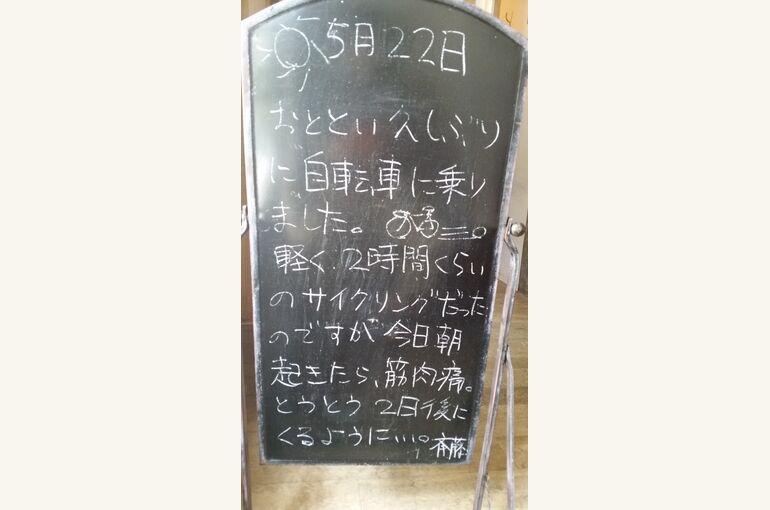 5月22日
おととい久しぶり
に自転車に乗り
ました。
軽く2時間くらい
のサイクリングだった
のですが今日朝
起きたら、筋肉痛。
とうとう2日後に
くるように…。斉藤